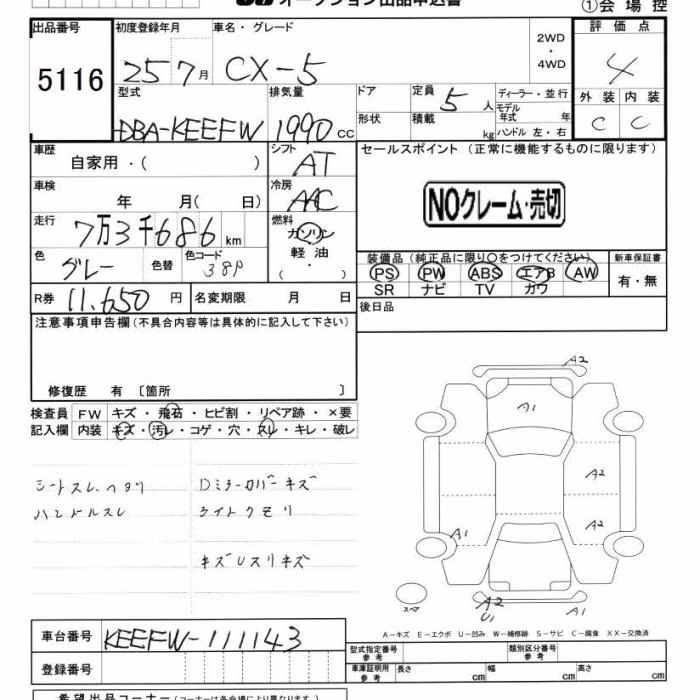 オークション出品申込書
①会場控
出品番号 初度登録年月 車名・グレード 2WD・4WD 評価点
5116 25 7月 CX-5 4
型式 排気量 ドア 定員 5人 ディーラー・並行 外装 内装
DBA-KEEFW 1990cc 形状 積載 kg モデル年式 年 C C
ハンドル 左・右
車歴 自家用・( ) シフト AT セールスポイント (正常に機能するものに限ります)
車検 年 月( 日) 冷房 AAC NOクレーム・売切
走行 7万3千686km 燃料 ガソリン・軽油・( )
色 グレー 色替 色コード 38P
装備品(純正品に限り○をつけてください。) 新車保証書
PS PW ABS エアB AW 有・無
SR ナビ TV カワ
R券 11.650円 名変期限 月 日 後日品
注意事項申告欄(不具合内容等は具体的に記入して下さい)
修復歴 有〔箇所 〕
検査員記入欄 FW キズ・飛石・ヒビ割・リペア跡・×要
内装 キズ・汚レ・コゲ・穴・スレ・キレ・破レ
シートスレ.ヘタリ Dミラーカバーキズ
ハンドルスレ ライトクモリ
キズUスリキズ
A2
A1
A2
A2
A1
スペア
A2
U1
A1
A-キズ E-エクボ U-凹み W-補修跡 S-サビ C-腐食 XX-交換済
車台番号 KEEFW-111143
型式指定番号 参考 類別区分番号 参考
登録番号 車庫証明用 参考 長さ cm 幅 cm 高さ cm
希望出品コーナー(コーナーは各会場により異なります。)